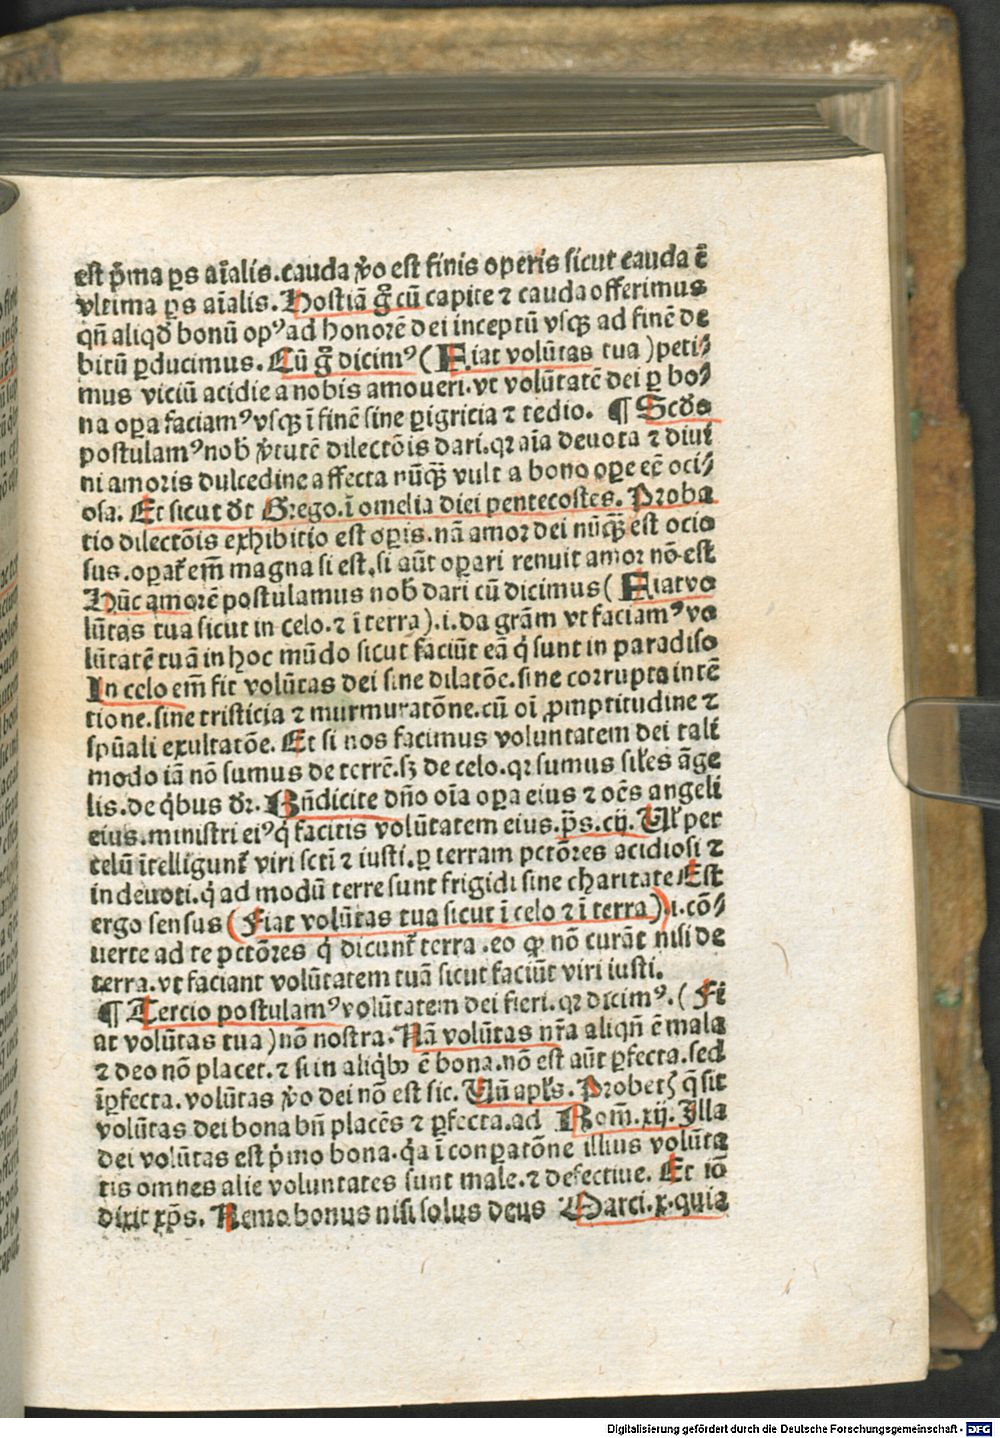 est p̄ma ꝑs aīalis.cauda v̄o est finis operis sicut cauda ē
vltima ꝑs aīalis. Hostiā ḡ cū capite ⁊ cauda offerimus
qn̄ aliqd̄ bonū opꝰ ad honorē dei inceptū vsqꝫ ad finē de
bitū ꝑducimus. Cū ḡ dicimꝰ (Fiat volūtas tua) peti⸗
mus viciū acidie a nobis amoueri.vt volūtatē dei ꝑ bo⸗
na oꝑa faciamꝰ vsqꝫ ī finē sine pigricia ⁊ tedio. ¶ Scd̄o
postulamꝰ nob̄ v̄tutē dilectōis dari.qꝛ aīa deuota ⁊ diui
ni amoris dulcedine affecta nūqꝫ̄ vult a bono oꝑe eē oci⸗
osa. Et sicut dt̄ Grego.ī omelia diei pentecostes. Proba
tio dilectōis exhibitio est oꝑis.nā amor dei nūqꝫ̄ est ocio
sus.oꝑat̄ em̄ magna si est.si aūt oꝑari renuit amor nō est
Hūc amorē postulamus nob̄ dari cū dicimus (Fiat vo
lūtas tua sicut in celo.⁊ ī terra).i.da grām vt faciamꝰ vo
lūtatē tuā in hoc mūdo sicut faciūt eā q̄ sunt in paradiso
In celo em̄ fit volūtas dei sine dilatōe.sine corrupta intē
tione.sine tristicia ⁊ murmuratōne.cū oī ꝓmptitudine ⁊
spūali exultatōe. Et si nos facimus voluntatem dei tali
modo iā nō sumus de terrē.sꝫ de celo.qꝛ sumus sil̄es āge
lis.de q̇bus dr̄. Bn̄dicite dn̄o oīa oꝑa eius ⁊ oēs angeli
eius.ministri eiꝰ q̄ facitis volūtatem eius.p̄s.cij. Ul̄ per
celū ītelligunt̄ viri scti ⁊ iusti.ꝑ terram pctōres acidiosi ⁊
indeuoti.q̄ ad modū terre sunt frigidi sine charitate Est
ergo sensus (Fiat volūtas tua sicut ī celo ⁊ ī terra).i.cō⸗
uerte ad te pctōres q̄ dicunt̄ terra.eo ꝙ nō curāt nisi de
terra.vt faciant volūtatem tuā sicut faciūt viri iusti.
¶ Tercio postulamꝰ volūtatem dei fieri.qꝛ dicimꝰ.(Fi
at volūtas tua) nō nostra. Nā volūtas nr̄a aliqn̄ ē mala
⁊ deo nō placet.⁊ si in aliqbꝰ ē bona.nō est aūt ꝑfecta.sed
īꝑfecta.volūtas v̄o dei nō est sic. Un̄ apl̄s. Probetꝭ q̄ sit
volūtas dei bona bn̄ placēs ⁊ ꝑfecta.ad Rom̄.xij. Illa
dei volūtas est p̄mo bona.q̇a ī conꝑatōne illius volūta
tis omnes alie voluntates sunt male.⁊ defectiue. Et iō
dixit xp̄s. Nemo bonus nisi solus deus Marci.x.quia
Digitalisierung gefördert durch die Deutsche Forschungsgemeinschaft - DFG